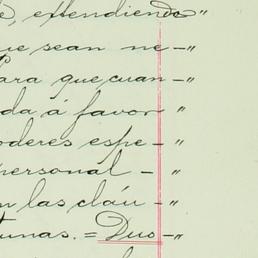 extendiendo"
que sean ne-"
para que cuan-"
da á favor "
poderes espe-"
personal-"
n las cláu-"
tunas.=Duo-"